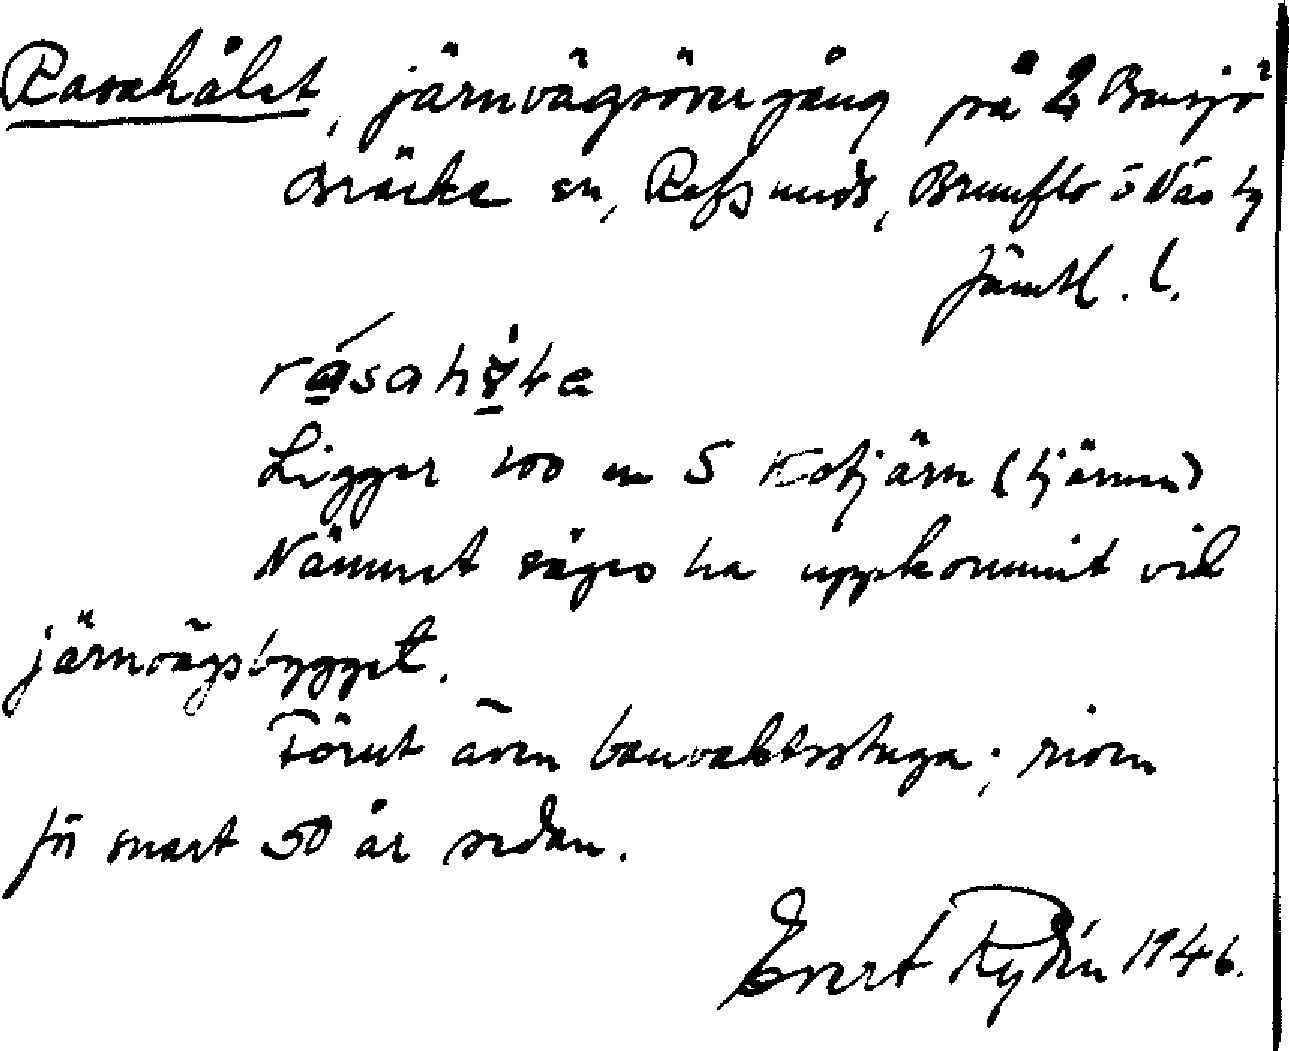 Rasahålet, järnvägsövergång på 2 Bensjö²
Bräcke sn, Refsunds, Brunflo o Näs tg
Jämtl. l.
Ligger 400 m S Kotjärn (tjärnen)
Namnet säges ha uppkommit vid
järnvägsbygget.
Förut även banvaktsstuga; riven
för snart 50 år sedan.
Evert Rydén 1946.